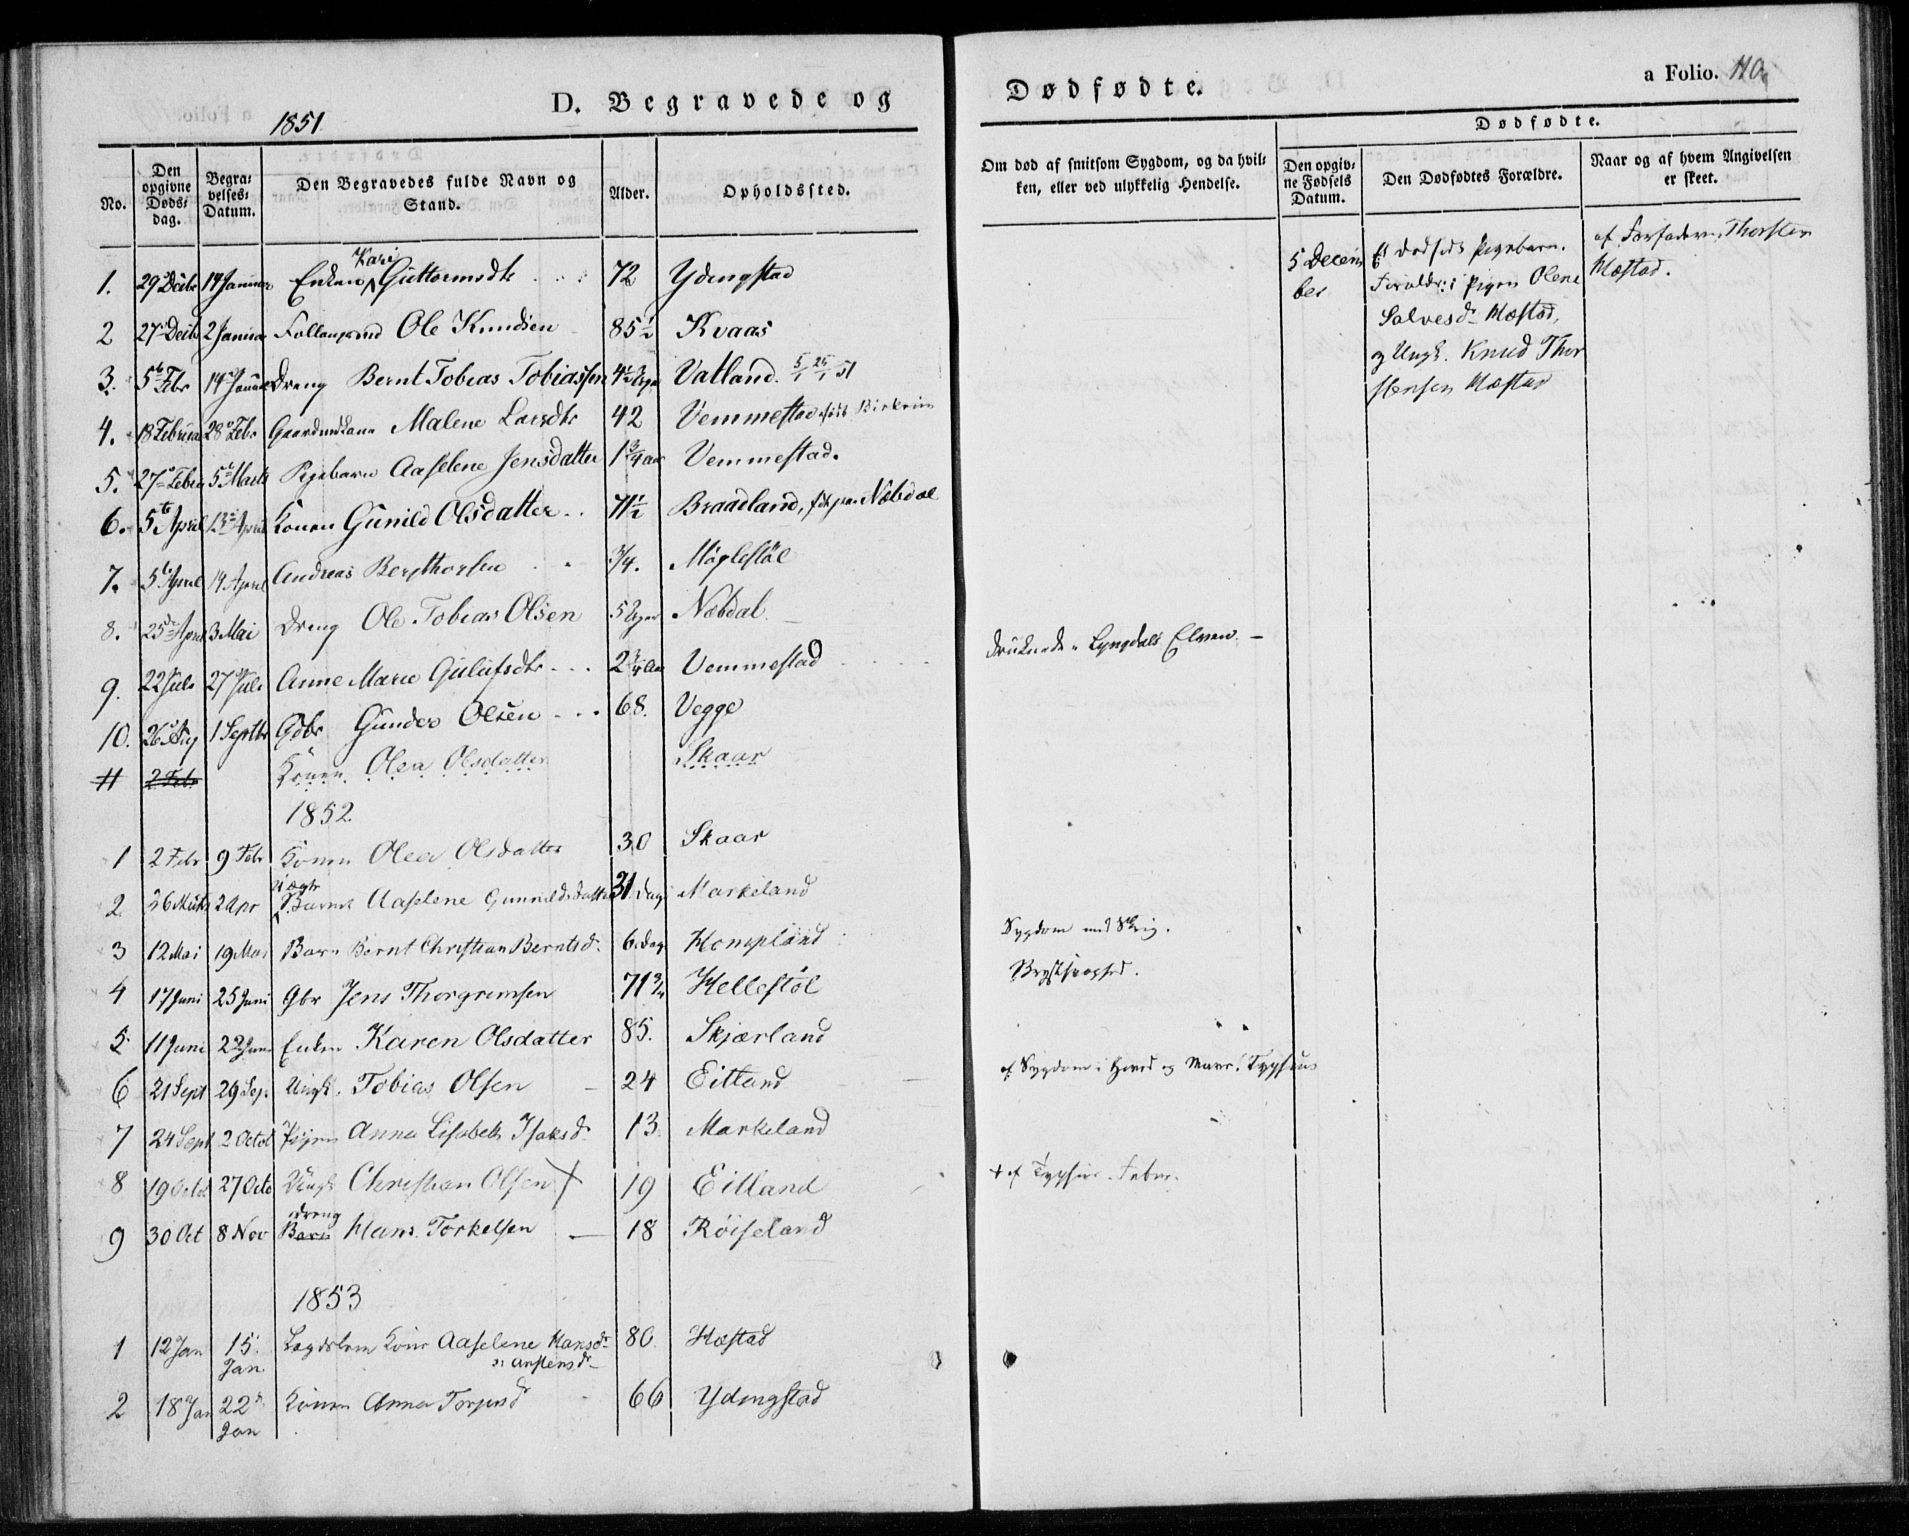 D. Begravede og
1851
No. Den opgivne Døds-dag. Begra-velses-Datum. Den Begravedes fulde Navn og Stand. Alder. Opholdssted.
1. 29 Decbr 14 Januar Enken Kari Guttormsdtr 72 Ydengstad
2 27 Decbr 2 Januar Ole Knudsen 85½ Kvaas
3. 5te Febr 14 Januar Dreng Bernt Tobias Tobiassen Vatland. 5/1 25/1 51
4. 18 Februar 28 Febr Malene Larsdtr 42 Vemmestad
5. 27 Febru 5te Marts Pigebarn Aaselene Jensdatter 1¾ aar Vemmestad.
6. 5te April 13de April Konen Gunild Olsdatter 71½ Braadland, Nabdal
7. 5te April 14 April Andreas Bergthorsen ¾. Møglestøl
8. 25de April 3 Mai Dreng Ole Tobias Olsen 5 Nabdal
9. 22 Juli 27 Juli Anne Marie Gulufsdtr 2¾ Aar Vemmestad
10. 26 Aug 1 Septbr Gbr Gunder Olsen 68. Vegge
11 2 Febr Konen Olea Olsdatter Skaar
1852.
1 2 Febr 9 Febr Konen Olea Olsdatter 30 Skaar
2 26 Marts 2 Apr Uægte Barn Aaselene Gunnildsdatter 31 Dage Markeland
3 12 Mai 19 Mai Barn Bernt Christian Berntsd. 6. dag Kompland
4 17 Juni 25 Juni Gbr Jens Thorgrimsen 71¾ Hellestøl
5 11 Juni 22 Juni Enken Karen Olsdatter 85. Skjærland
6 21 Sept 29 Sep. Ungk. Tobias Olsen 24 Eitland
7 24 Sept 2 Octob Pigen Anna Lisabeth Isaksd. 13. Markeland
8 19 Octob 27 Octo Ungk Christian Olsen + 19 Eitland
dreng
9 30 Oct 8 Nov Barn Hans Torkelsen 18 Røiseland
1853
1 12 Jan 15. Jan Lægdslem Kone Aaselene Hansdr 80 Hæstad
2 18 Jan 22 Jan Konen Anna 66 Ydingstad
Dødfødte.
a Folio. 110.
Om død af smitsom Sygdom, og da hvil-ken, eller ved ulykkelig Hendelse.
Dødfødte.
Den opgiv-ne Fødsels Datum. Den Dødfødtes Forældre. Naar og af hvem Angivelsen er skeet.
5 Decem-ber
Et dødfødt Pigebarn.
Forældr: Pigen Olene
Salvesdr Hæstad,
og Ungk. Knud Thor
stensen Hæstad
af Farfaderen Thorsten
Hæstad.
druknede i Lyngdals Elven. —
Sygdom med Skrig.
af Sygdom i Hoved og Mave: Typhus
+ af Typhus Feber.